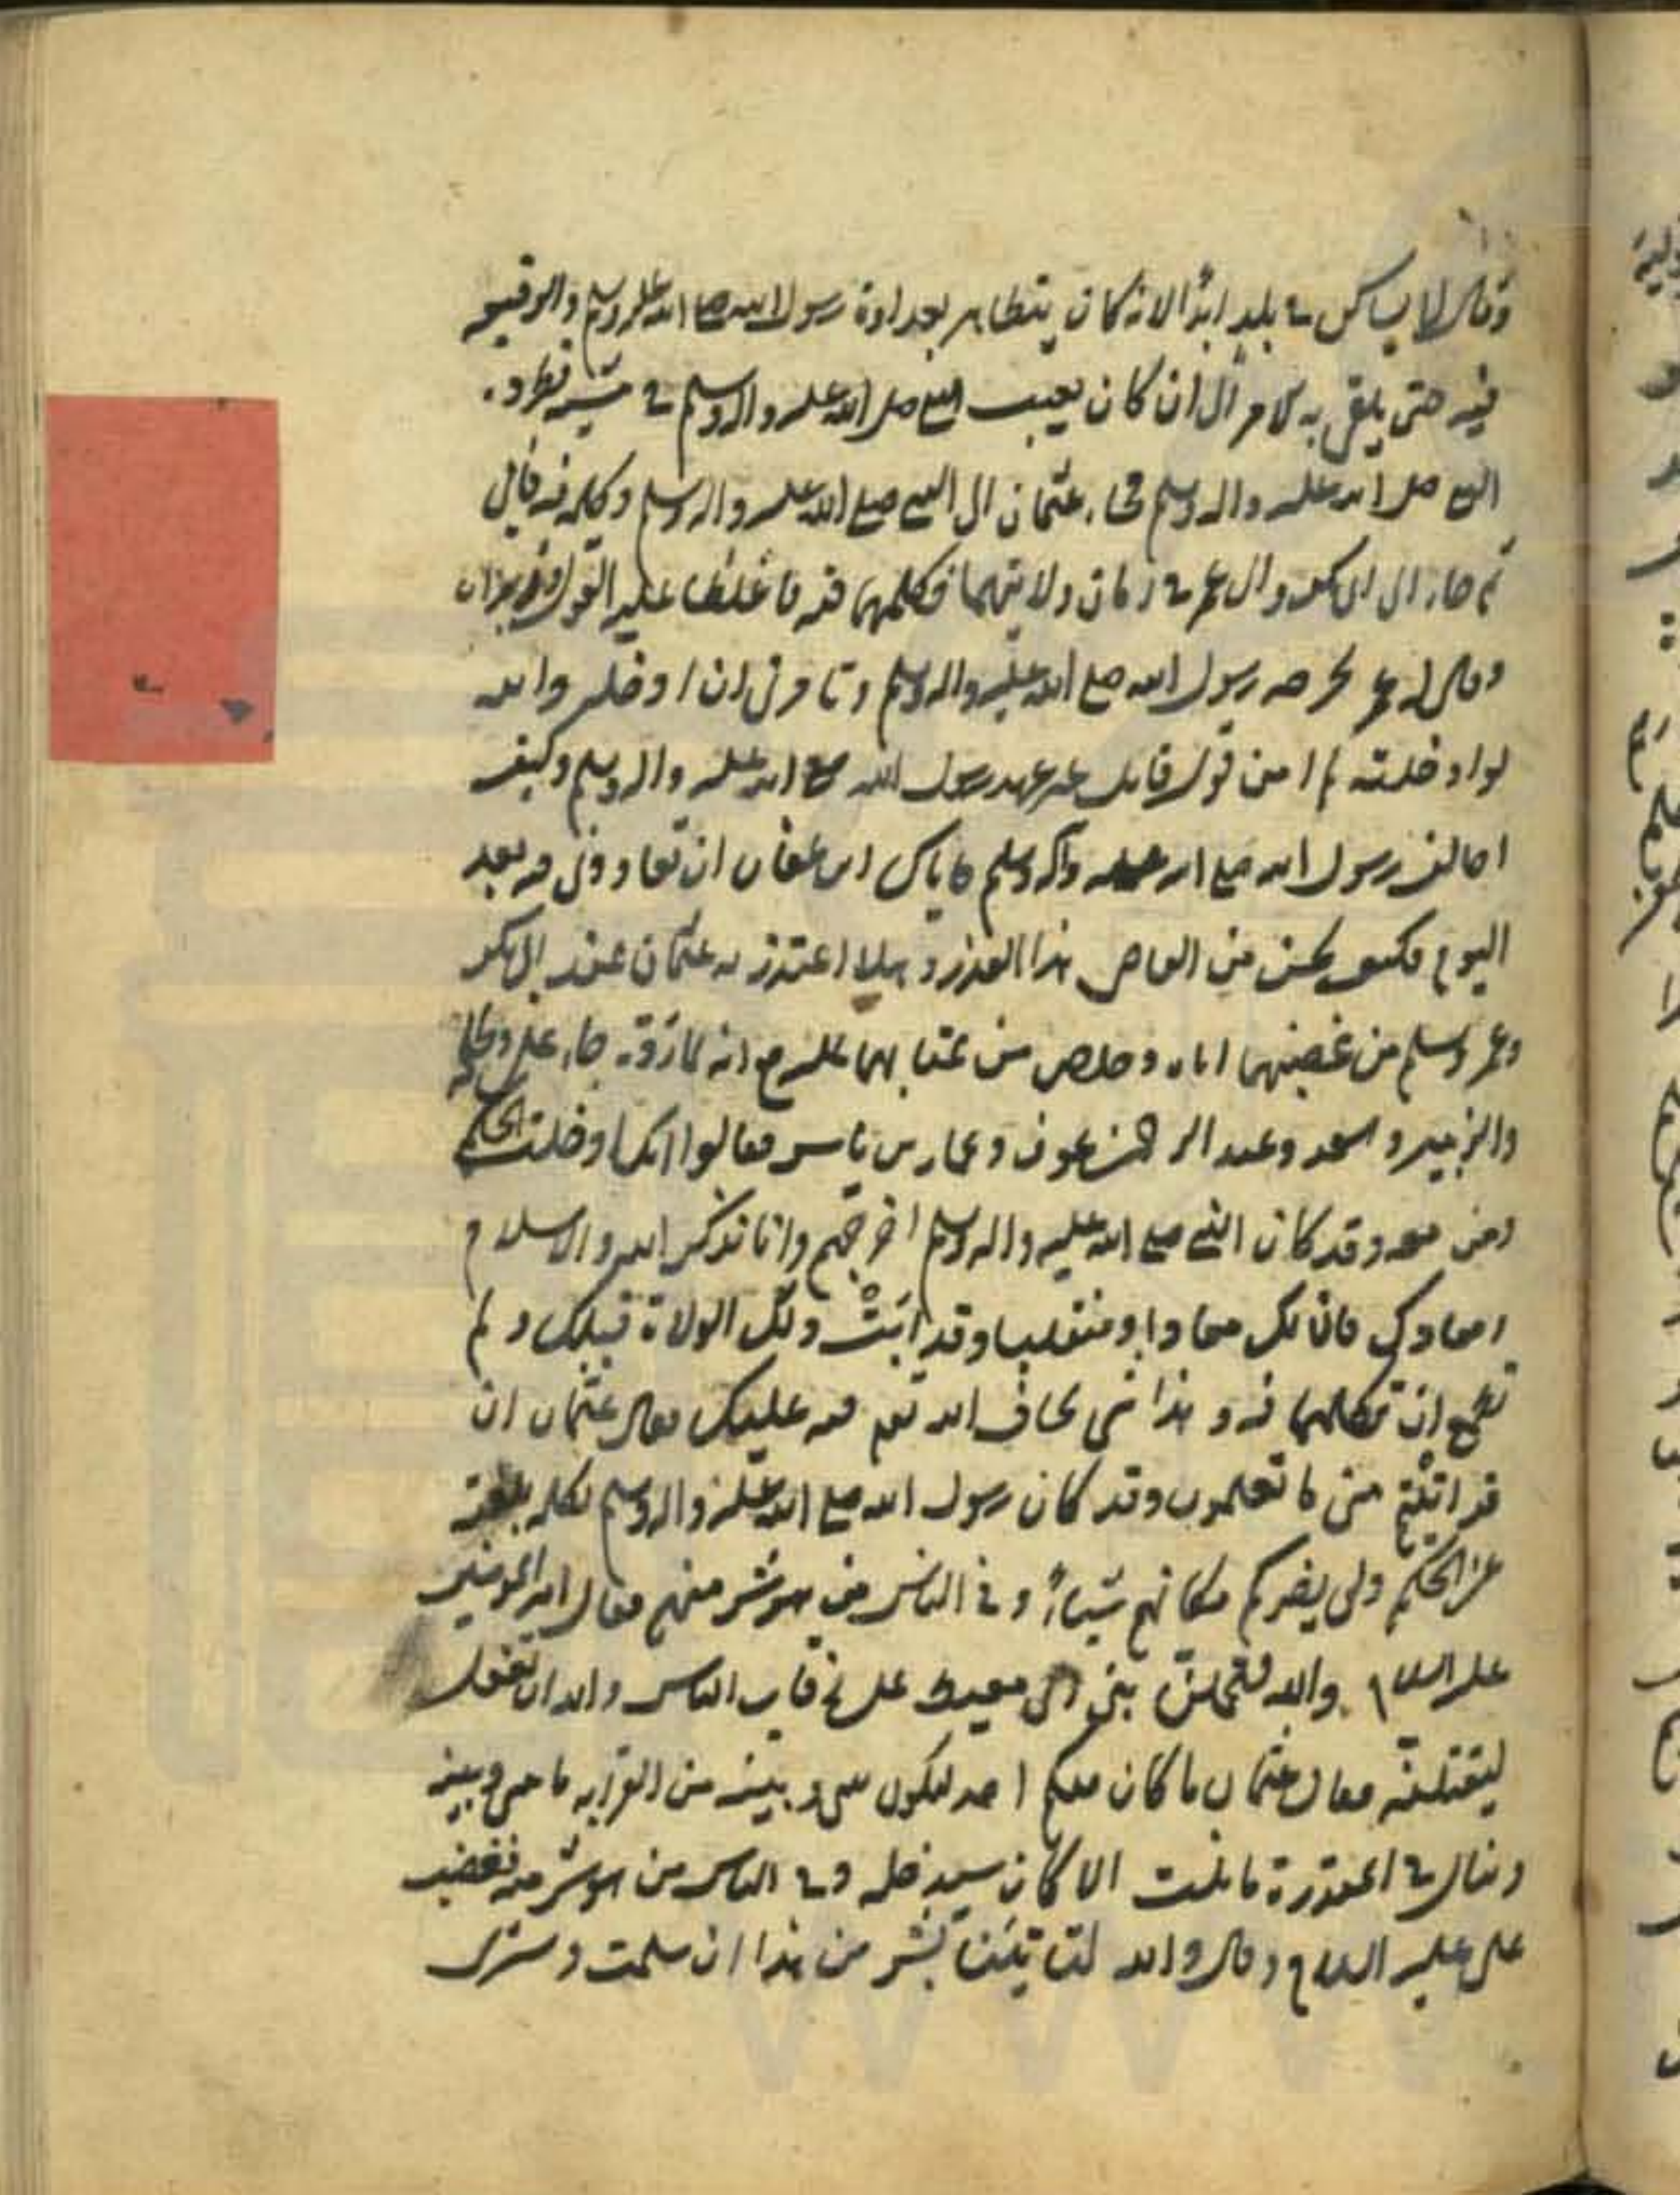 وقال لا يساكنني في بلد ابدا لانه كان يتظاهر بعداوة رسول الله صلى الله عليه وسلم والوقيعة
فيه حتى بلغ به الامر الى ان كان يعيب النبي صلى الله عليه واله وسلم في مشيه فطرده
النبي صلى الله عليه واله وسلم فجاء عثمان الى النبي صلى الله عليه واله وسلم وكلمه فيه فابى
ثم جاء الى ابى بكر والى عمر في زمان ولايتهما فكلمهما فيه فاغلظا عليه القول وزبراه
وقال له عمر يخرجه رسول الله صلى الله عليه واله وسلم وتامرني ان ادخله والله
لو ادخلته لم امن قول قايل غير عهد رسول الله صلى الله عليه واله وسلم وكيف
اخالف رسول الله صلى الله عليه وآله وسلم فاياك ابن عفان ان تعاودني فيه بعد
اليوم فكيف يحسن من القاضي هذا العذر وهلا اعتذر به عثمان عند ابى بكر
وعمر وسلم من غضبهما اياه وخلص من عتابهما عليه مع انه لما رده جاء علي وطلحة
والزبير وسعد وعبد الرحمن بن عوف وعمار بن ياسر فقالوا انك ادخلت الحكم
ومن معه وقد كان النبي صلى الله عليه واله وسلم اخرجهم وانا نذكر الله والاسلام
ومعادك فان لك معادا ومنقلبا وقد ابت ذلك الولاة قبلك ولم
يطمع ان تكلمهما فيه وهذا شي نخاف الله تعم فيه عليك فقال عثمان ان
قرابتهم مني ما تعلمون وقد كان رسول الله صلى الله عليه واله وسلم
الحكم ولن يضركم مكانهم شيئا وفي الناس من هو شر منهم فقال امير المؤمنين
عليه السلام والله ليحملن بني ابى معيط على رقاب الناس والله ان فعل
ليقتلنه فقال عثمان ما كان منكم احد يكون بيني وبينه من القرابه ما بيني وبينه
وينال في المقدرة ما نلت الا كان سيدخله وفي الناس من هو شر منه فغضب
علي عليه السلام وقال والله لتاتينا بشر من هذا ان سلمت وسترى